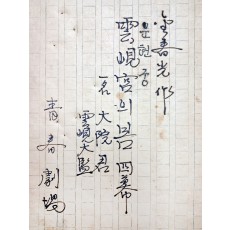 金春光作
운현궁
雲峴宮의봄 四幕
一名 大院君
雲峴大監
靑春劇場